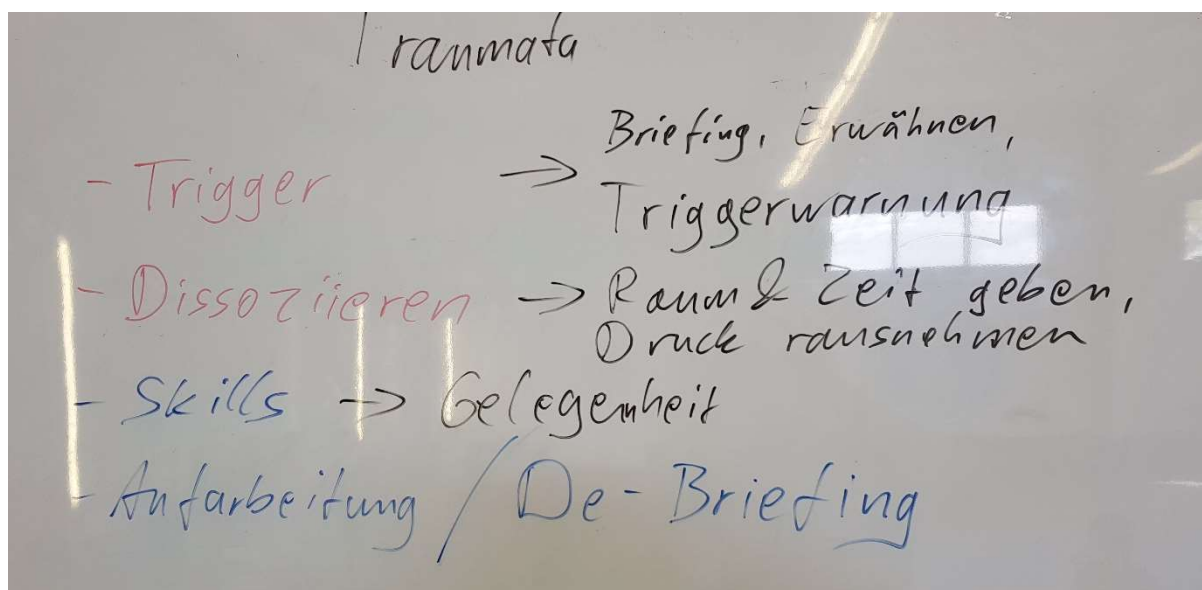 Traumata
- Trigger → Briefing, Erwähnen,
Triggerwarnung
- Dissoziieren → Raum & Zeit geben,
Druck rausnehmen
- Skills → Gelegenheit
- Aufarbeitung / De-Briefing